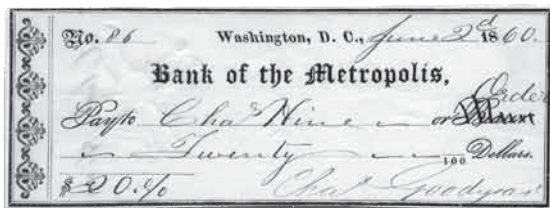 No. 86 Washington, D. C., June 2d 1860.
Bank of the Metropolis,
Order
Pay to Chas Hine or
Twenty 100 Dollars.
$20.%
Chas Goodyear